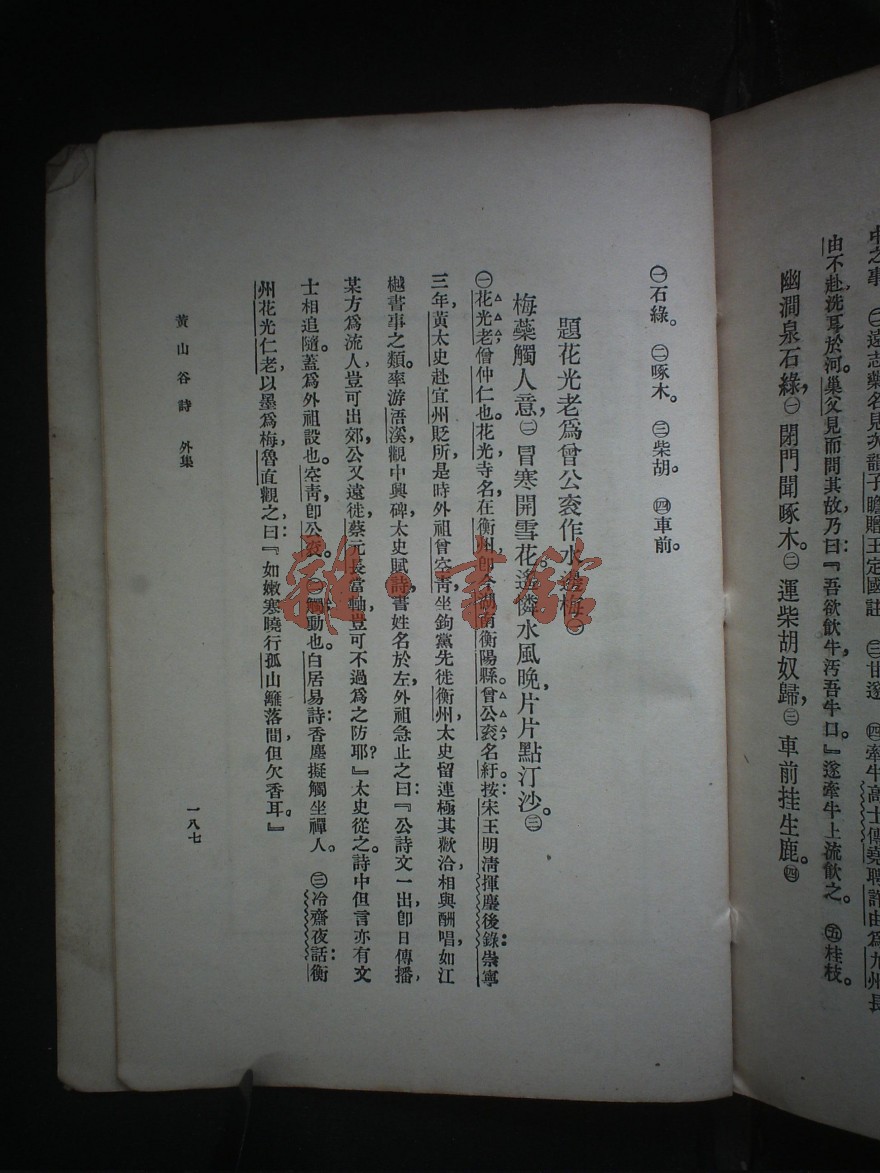 中之事　㊁遠志藥名見
子瞻贈王定國註　㊂甘遂　㊃牽牛高士傳堯聘許由爲九州長
由不赴洗耳於河。巢父見而問其故乃曰：『吾欲飲牛，汚吾牛口。』遂牽牛上流飲之。　㊄桂枝。
幽澗泉石綠，㊀閉門聞啄木。㊁運柴胡奴歸，㊂車前挂生鹿。㊃
㊀石綠。　㊁啄木。　㊂柴胡。　㊃車前。
題花光老爲曾公袞作水邊梅㊀
梅蘂觸人意，㊁冒寒開雪花。遙憐水風晚，片片點汀沙。㊂
㊀花光老，僧仲仁也。花光寺名，在衡州，卽今湖南衡陽縣。曾公袞，名紆。按宋王明淸揮麈後錄：崇寧
三年，黃太史赴宜州貶所，是時外祖曾空靑坐鉤黨，先徙衡州，太史留連極其歡洽，相與酬唱，如江
樾書事之類。率游浯溪，觀中興碑，太史賦詩，書姓名於左，外祖急止之曰：『公詩文一出，卽日傳播，
某方爲流人，豈可出郊，公又遠徙，蔡元長當軸，豈可不過爲之防耶？』太史從之。詩中但言亦有文
士相追隨。蓋爲外祖設也。空靑，卽公袞。　㊁觸，動也。白居易詩：香塵擬觸坐禪人。　㊂冷齋夜話：衡
州花光仁老，以墨爲梅，魯直觀之，曰：『如嫩寒曉行孤山籬落間，但欠香耳。』
黃山谷詩　外集
一八七
雜·書館